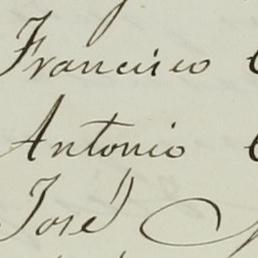 Francisco
Antonio
José